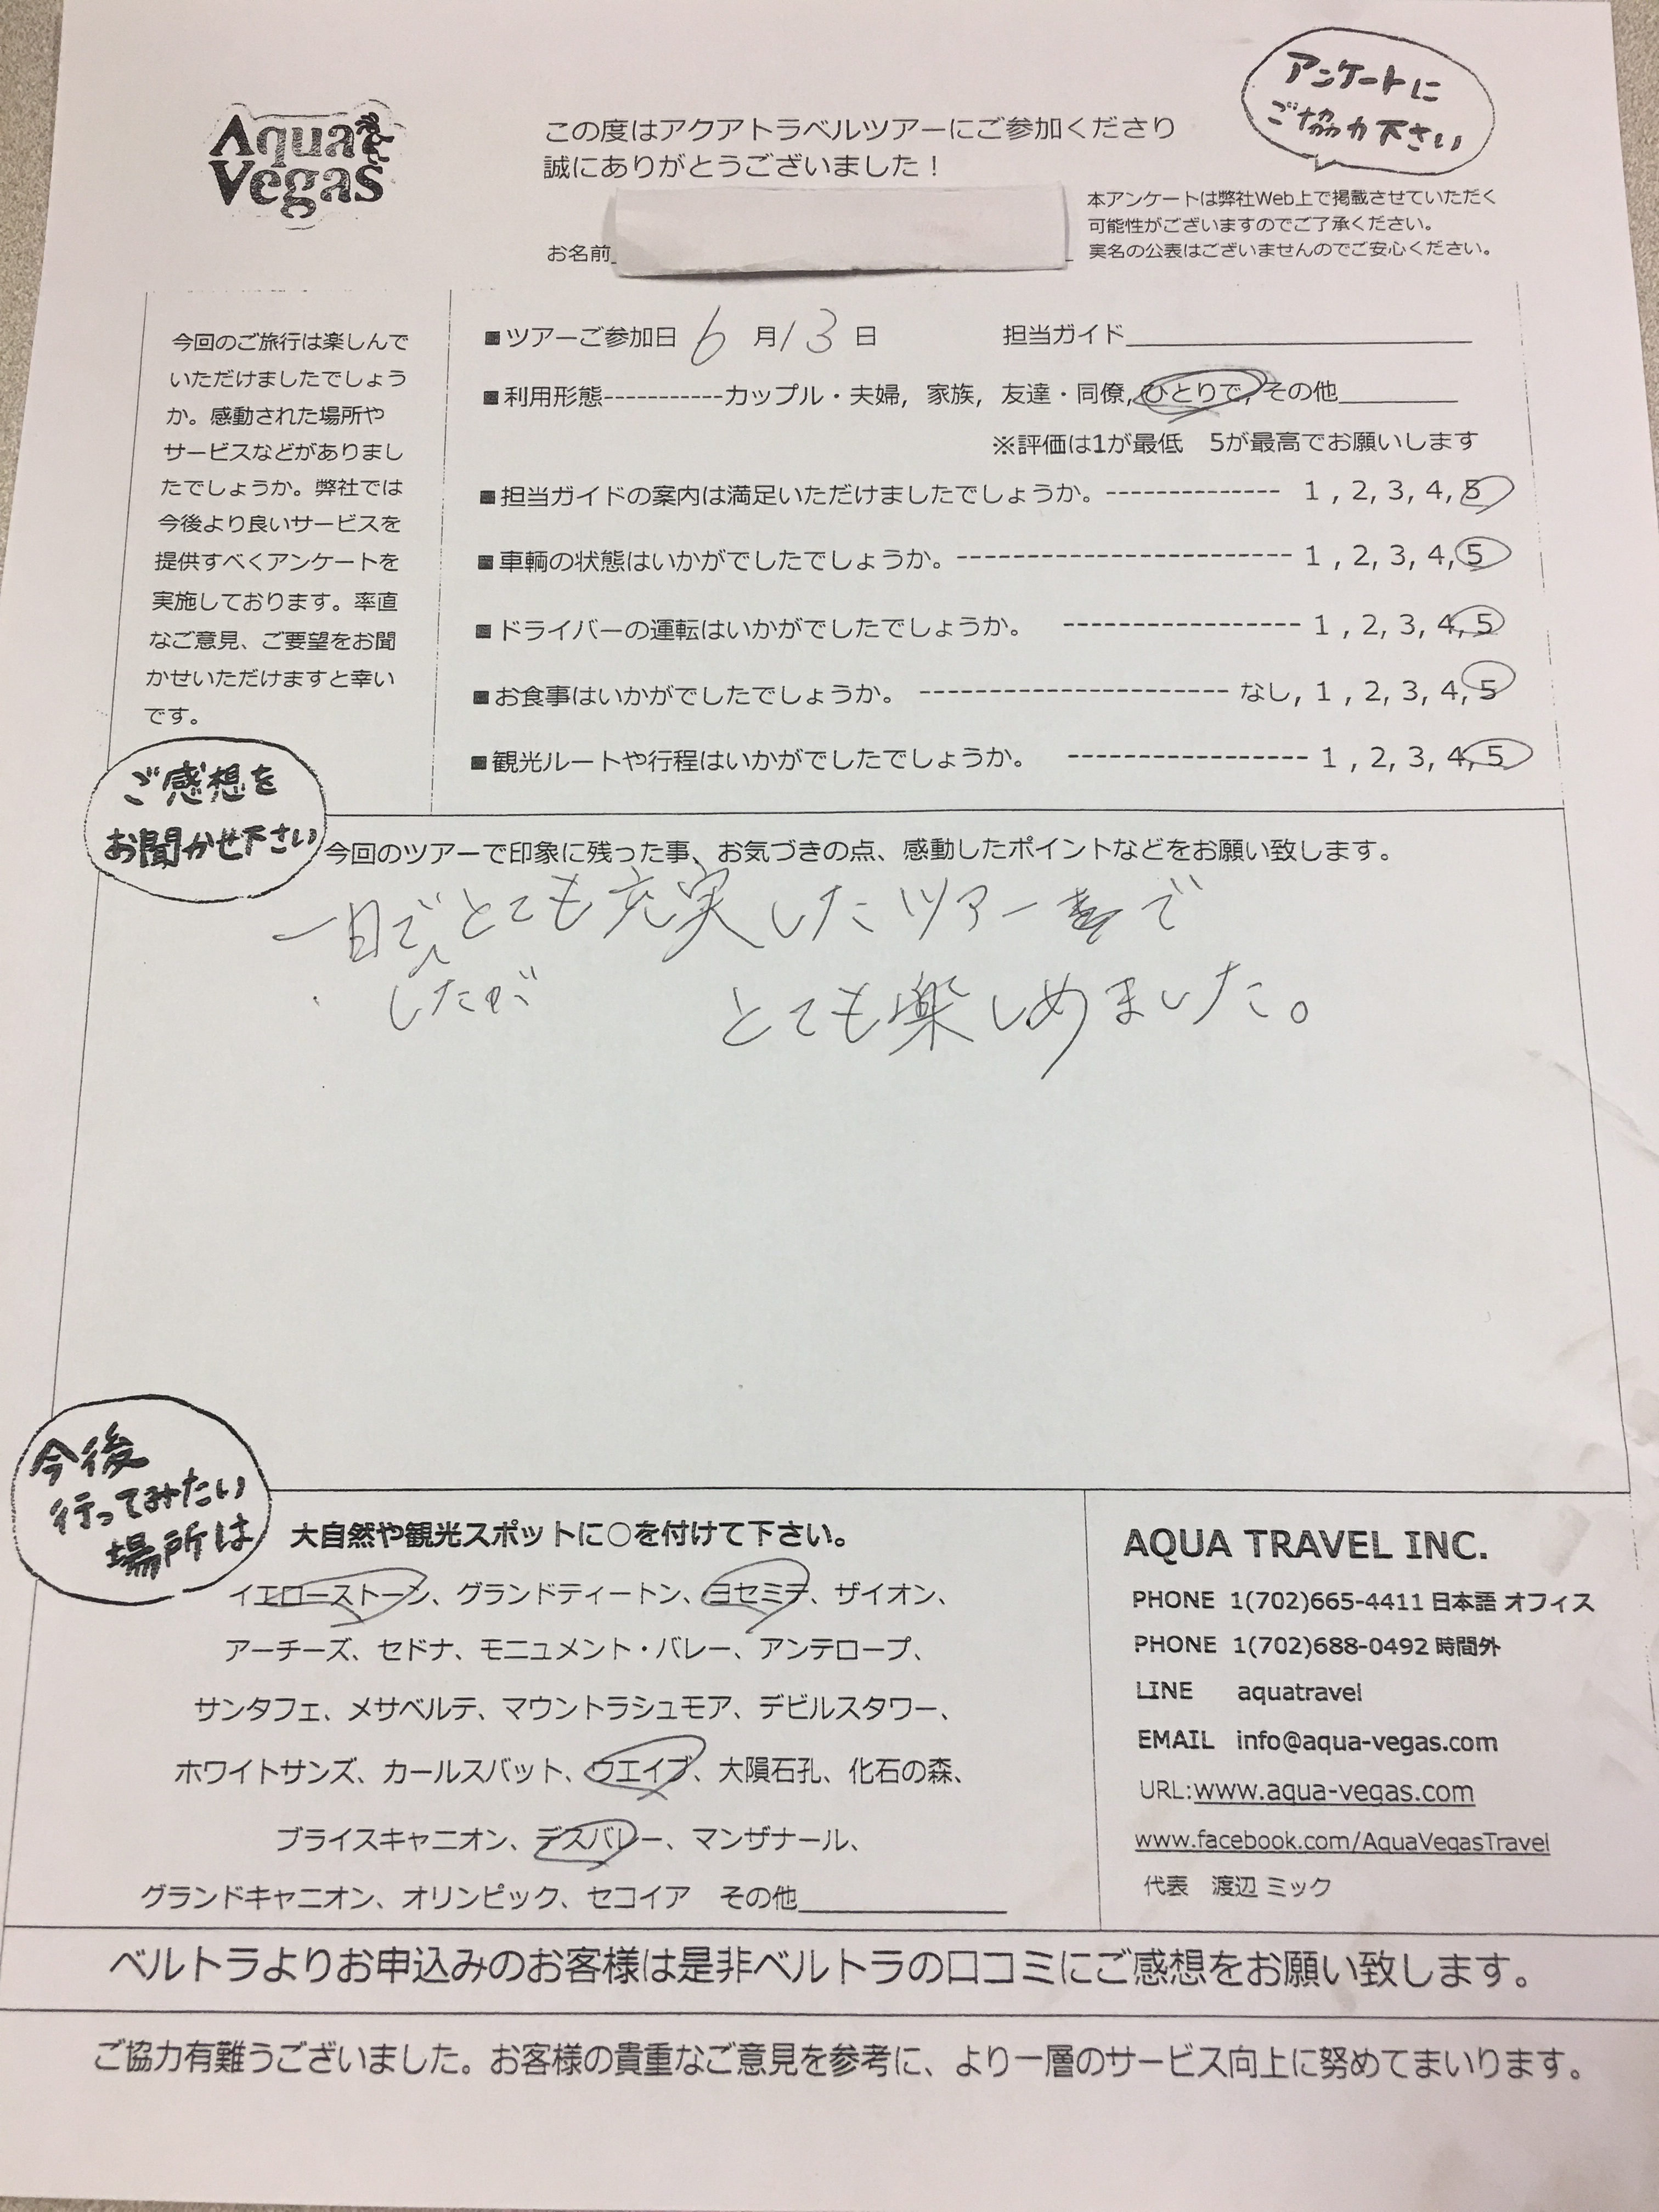 Aqua
Vegas
この度はアクアトラベルツアーにご参加くださり
誠にありがとうございました！
アンケートに
ご協力下さい
お名前
本アンケートは弊社Web上で掲載させていただく
可能性がございますのでご了承ください。
実名の公表はございませんのでご安心ください。
今回のご旅行は楽しんで
いただけましたでしょう
か。感動された場所や
サービスなどがありまし
たでしょうか。弊社では
今後より良いサービスを
提供すべくアンケートを
実施しております。率直
なご意見、ご要望をお聞
かせいただけますと幸い
です。
■ツアーご参加日 6 月 13 日 担当ガイド
■利用形態-----------カップル・夫婦, 家族, 友達・同僚, ひとりで, その他
※評価は1が最低 5が最高でお願いします
■担当ガイドの案内は満足いただけましたでしょうか。-------------- 1 , 2, 3, 4, 5
■車輌の状態はいかがでしたでしょうか。------------------------ 1 , 2, 3, 4, 5
■ドライバーの運転はいかがでしたでしょうか。 ----------------- 1 , 2, 3, 4, 5
■お食事はいかがでしたでしょうか。 ---------------------- なし, 1 , 2, 3, 4, 5
■観光ルートや行程はいかがでしたでしょうか。 ----------------- 1 , 2, 3, 4, 5
ご感想を
お聞かせ下さい
今回のツアーで印象に残った事、お気づきの点、感動したポイントなどをお願い致します。
一日で とても充実したツアーで
したが とても楽しめました。
今後
行ってみたい
場所は
大自然や観光スポットに○を付けて下さい。
イエローストーン、グランドティートン、ヨセミテ、ザイオン、
アーチーズ、セドナ、モニュメント・バレー、アンテロープ、
サンタフェ、メサベルテ、マウントラシュモア、デビルスタワー、
ホワイトサンズ、カールスバット、ウエイブ、大隕石孔、化石の森、
ブライスキャニオン、デスバレー、マンザナール、
グランドキャニオン、オリンピック、セコイア その他
AQUA TRAVEL INC.
PHONE 1(702)665-4411 日本語 オフィス
PHONE 1(702)688-0492 時間外
LINE aquatravel
EMAIL info@aqua-vegas.com
URL:www.aqua-vegas.com
www.facebook.com/AquaVegasTravel
代表 渡辺 ミック
ベルトラよりお申込みのお客様は是非ベルトラの口コミにご感想をお願い致します。
ご協力有難うございました。お客様の貴重なご意見を参考に、より一層のサービス向上に努めてまいります。